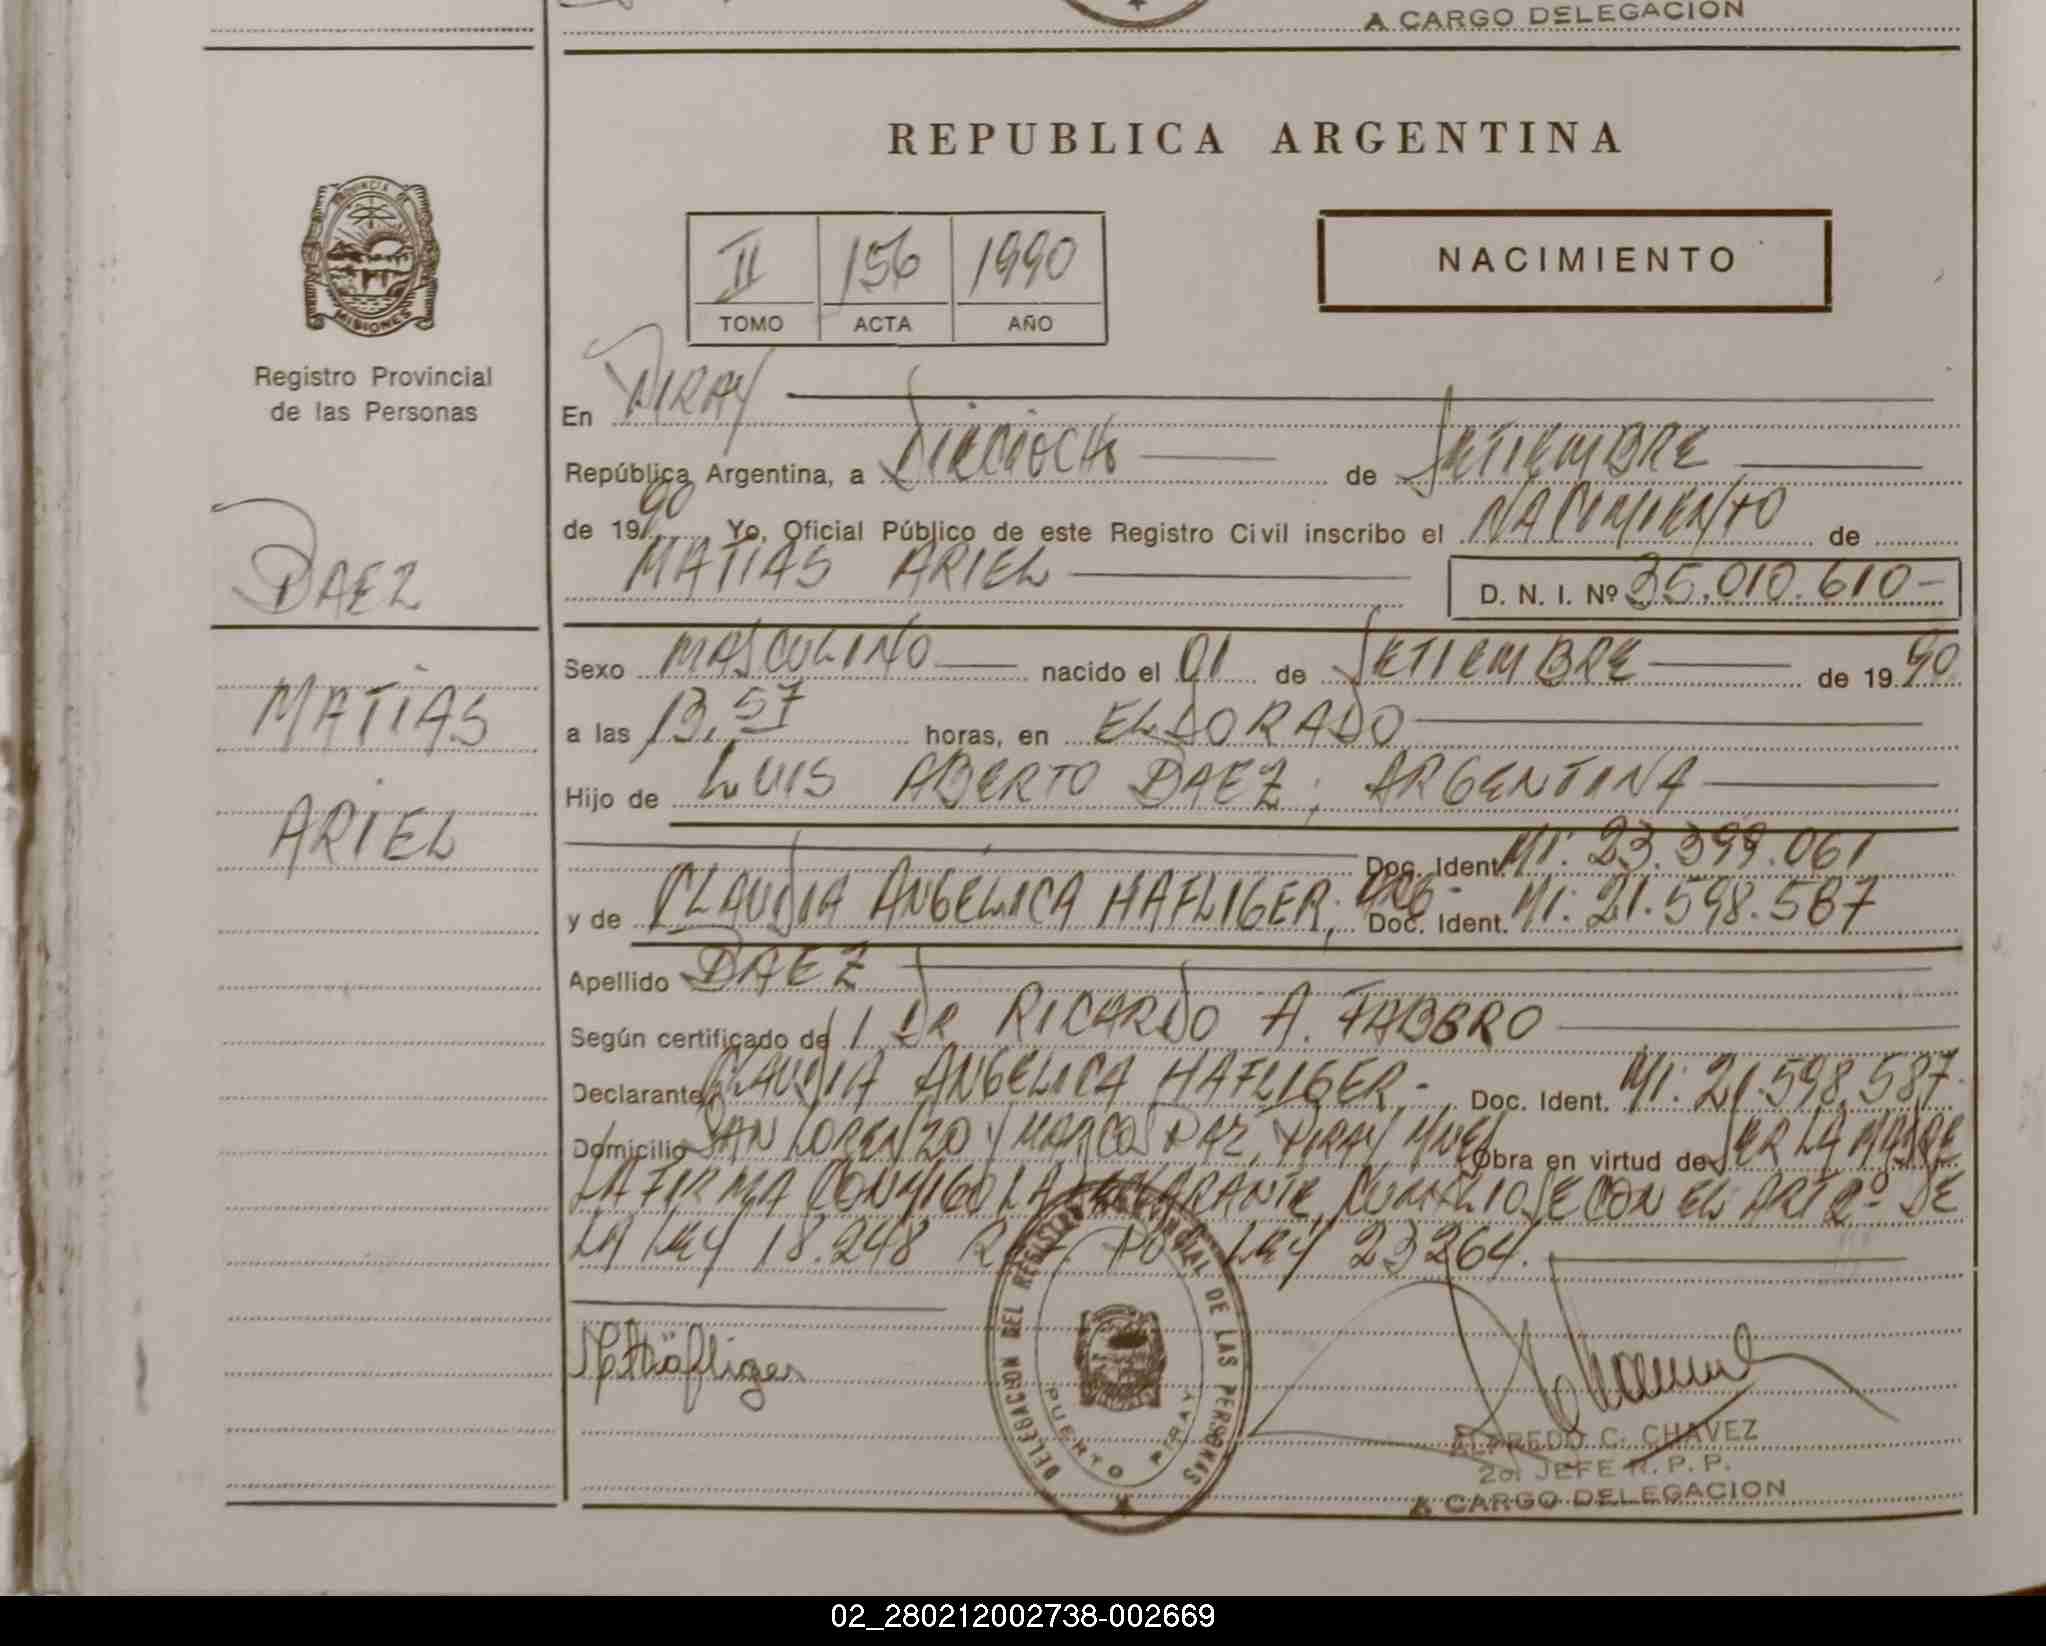 A CARGO DELEGACION
REPUBLICA ARGENTINA
PROVINCIA DE
MISIONES
Registro Provincial
de las Personas
II 156 1990
TOMO ACTA AÑO
NACIMIENTO
En PIRAY
República Argentina, a DIECIOCHO de SETIEMBRE
de 19 90 Yo, Oficial Público de este Registro Civil inscribo el NACIMIENTO de
MATIAS ARIEL D. N. I. Nº 35.010.610-
DAEZ
MATIAS
ARIEL
Sexo MASCULINO nacido el 01 de SETIEMBRE de 19 90
a las 13,57 horas, en ELDORADO
Hijo de LUIS ABERTO DAEZ; ARGENTINA
Doc. Ident. MI: 23.399.061
y de CLAUDIA ANGELICA HAFLIGER; ARG- Doc. Ident. MI: 21.598.587
Apellido DAEZ
Según certificado del DR RICARDO A. FABBRO
Declarante CLAUDIA ANGELICA HAFLIGER- Doc. Ident. MI: 21.598.587-
Domicilio SAN LORENZO Y MARCOS PAZ, PIRAY MNES Obra en virtud de SER LA MADRE
LA FIRMA CONMIGO LA DECLARANTE, CUMPLIOSE CON EL ART 2º DE
LA LEY 18.248 POR LEY 23264.
Häfliger
DELEGACION DEL REGISTRO PROVINCIAL DE LAS PERSONAS
PUERTO PIRAY
ALFREDO C. CHAVEZ
2do JEFE R. P. P.
A CARGO DELEGACION
02_280212002738-002669